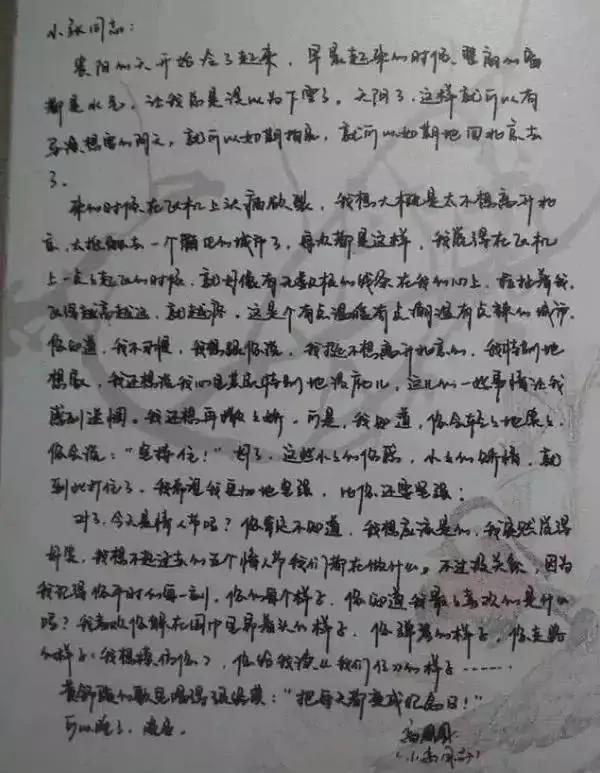 小永同志：
襄阳的天开始冷了起来，早晨起来的时候，壁前的窗
都是水气，让我总是误以为下雪了。天阴了，这样就可以有
导演想要的阴天，就可以如期拍完，就可以如期地回北京去
了。
来的时候在飞机上头痛欲裂，我想大概是太不想离开北
京，去抵触去一个陌生的城市了，每次都是这样，我觉得在飞机
上一点点起飞的时候，就好像有无数根的线条在我的心上，拉扯着我，
飞得越高越远，就越疼。这是个有点温暖有点潮湿有点辣的城市，
你知道，我不习惯，我想跟你说，我挺不想离开北京的，我特别地
想家，我还想说我心里其实特别地没底儿，这儿的一些事情让我
感到迷惘。我还想再撒撒娇。可是，我知道，你会轻轻地骂骂，
你会说："坚持住！"对了，这些小小的伤感，小小的矫情，就
到此打住了，我希望我更加地坚强，比你还要坚强；
对了，今天是情人节吗？你肯定不知道，我想应该是的，我突然觉得
好笑，我想不起过去的五个情人节我们都在做什么。不过没关系，因为
我记得你平时的每一刻，你的每个样子，你知道我最喜欢的是什么
吗？我喜欢你躲在围巾里昂着头的样子，你弹琴的样子，你走路
的样子（我想模仿你），你给我读《我们仨》的样子……
黄舒骏的歌里唱得很浪漫："把每天都变成纪念日！"
高圆圆
（小高同志）